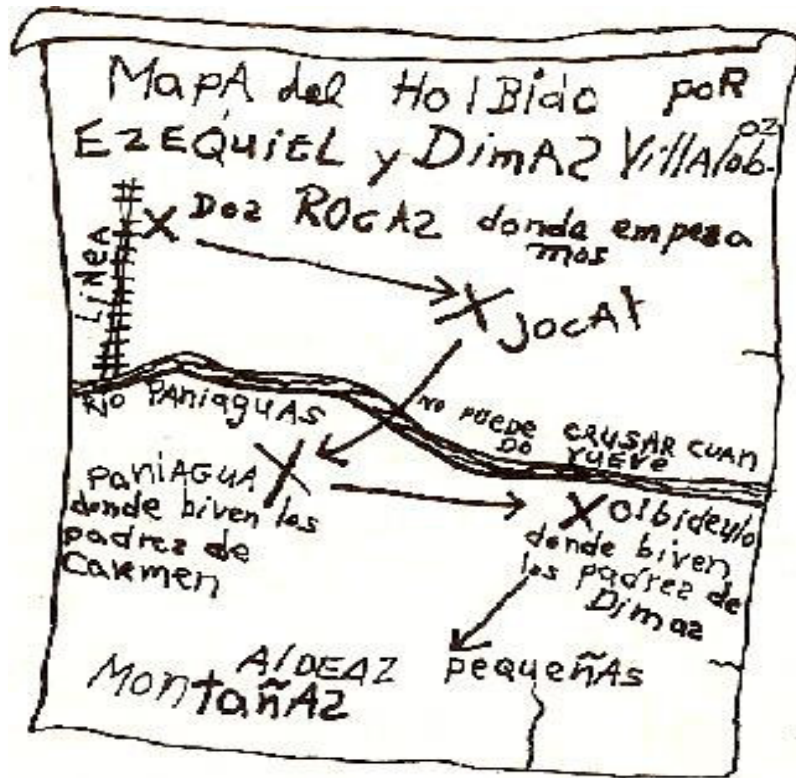 MapA del HolBido poR
EZEQuiEL y DimAZ VillAlob-
oz
DOZ ROCAZ donde empesa
mos
LiNEA
JOCAt
RiO PANiaguAS
NO PUEDE CRUSAR CUAN
DO YUEVE
PANiAGUA
donde biven los
padrez de
CaRmEN
Olbideulo
donde biven
los padrez de
Dimaz
AlDEAZ pequeñAs
MontañAZ